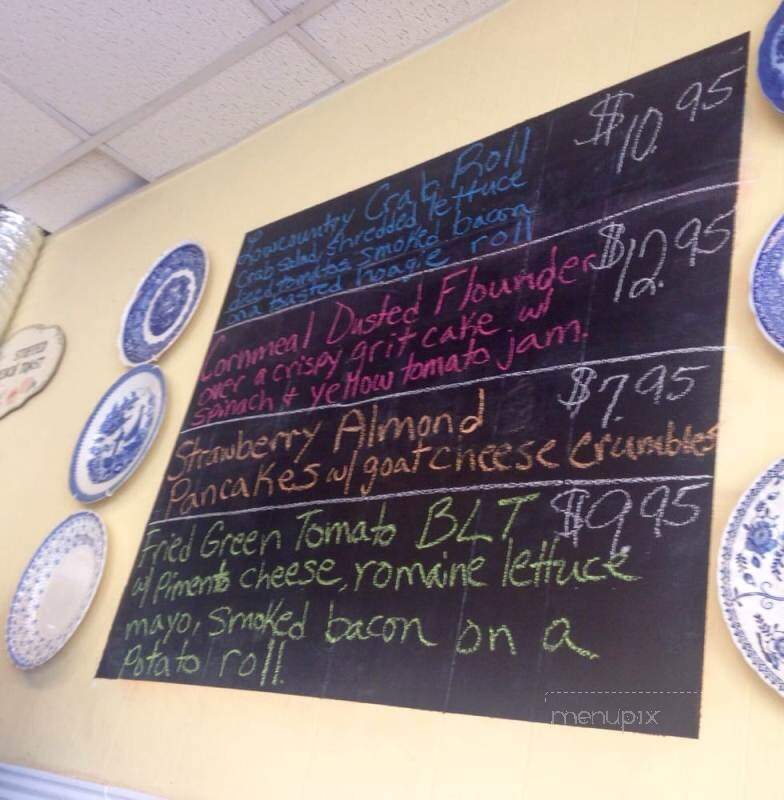 Lowcountry Crab Roll $10.95
Crab salad, shredded lettuce
diced tomatos smoked bacon
on a toasted hoagie roll
Cornmeal Dusted Flounder $12.95
over a crispy grit cake w/
spinach & yellow tomato jam.
Strawberry Almond $7.95
Pancakes w/ goat cheese crumbles
Fried Green Tomato BLT $9.95
w/ Pimento cheese, romaine lettuce
mayo, smoked bacon on a
Potato roll!
menupix